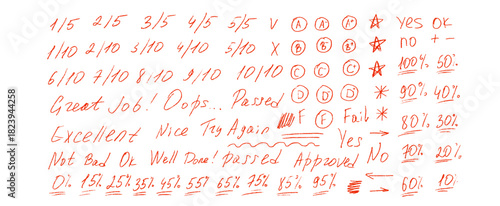 1/5 2/5 3/5 4/5 5/5 V A A A+ yes ok
1/10 2/10 3/10 4/10 5/10 X B B+ B- no + -
6/10 7/10 8/10 9/10 10/10 C C+ C- 100% 50%
Great Job! Oops... Passed D D+ D- * 90% 40%
Excellent Nice Try Again F F Fail * 80% 30%
Not Bad Ok Well Done! Passed Approved Yes No 70% 20%
0% 15% 25% 35% 45% 55% 65% 75% 85% 95% 60% 10%
Adobe Stock | #1823944258